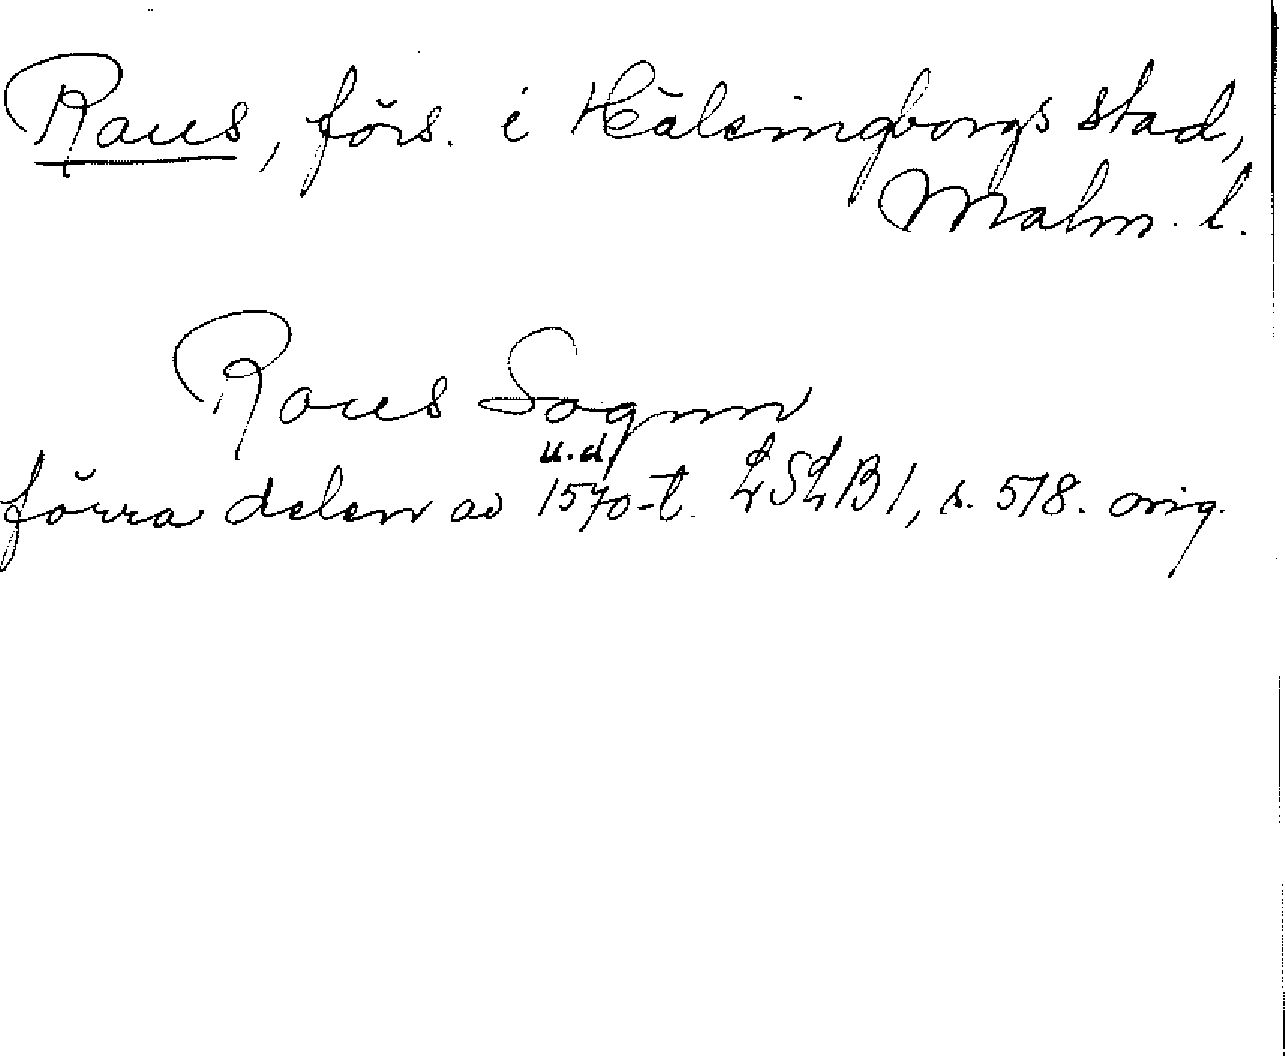 Raus, förs. i Hälsingborgs stad,
Malm. l.
Raus Sognn
u.d.
förra delen av 1570-t. LSLB1, s. 518. orig.